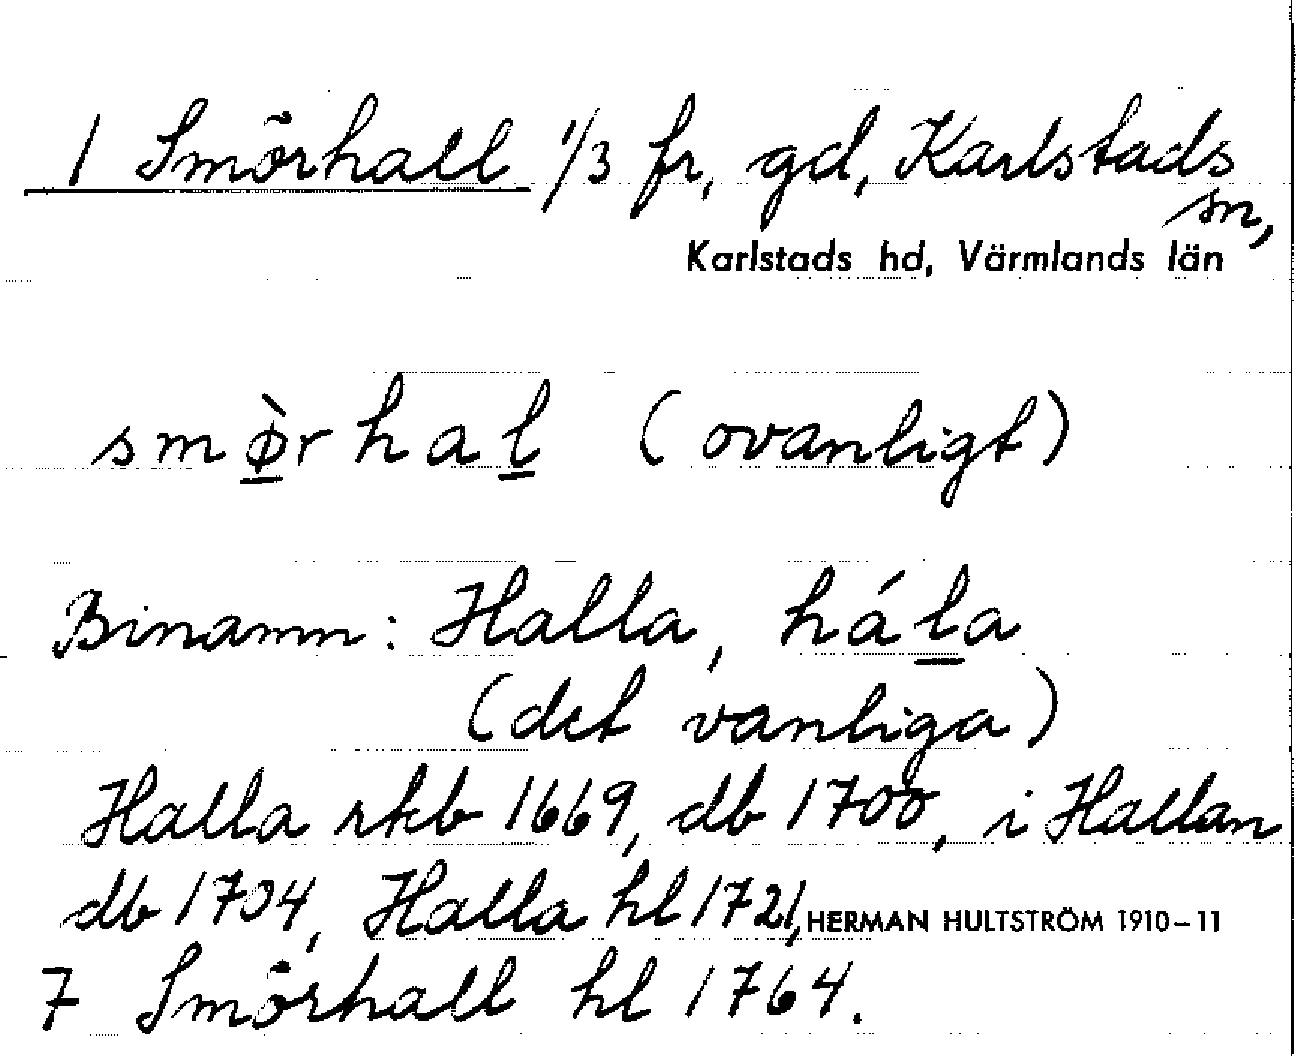 1 Smörhall 1/3 fr, gd, Karlstads
sn,
Karlstads hd, Värmlands län
smø̀rhal (ovanligt)
Binamn: Halla, hála
(det vanliga)
Halla rkb 1669, db 1700, i Hallan
db 1704, Halla hl 1721,
HERMAN HULTSTRÖM 1910-11
7 Smörhall hl 1764.